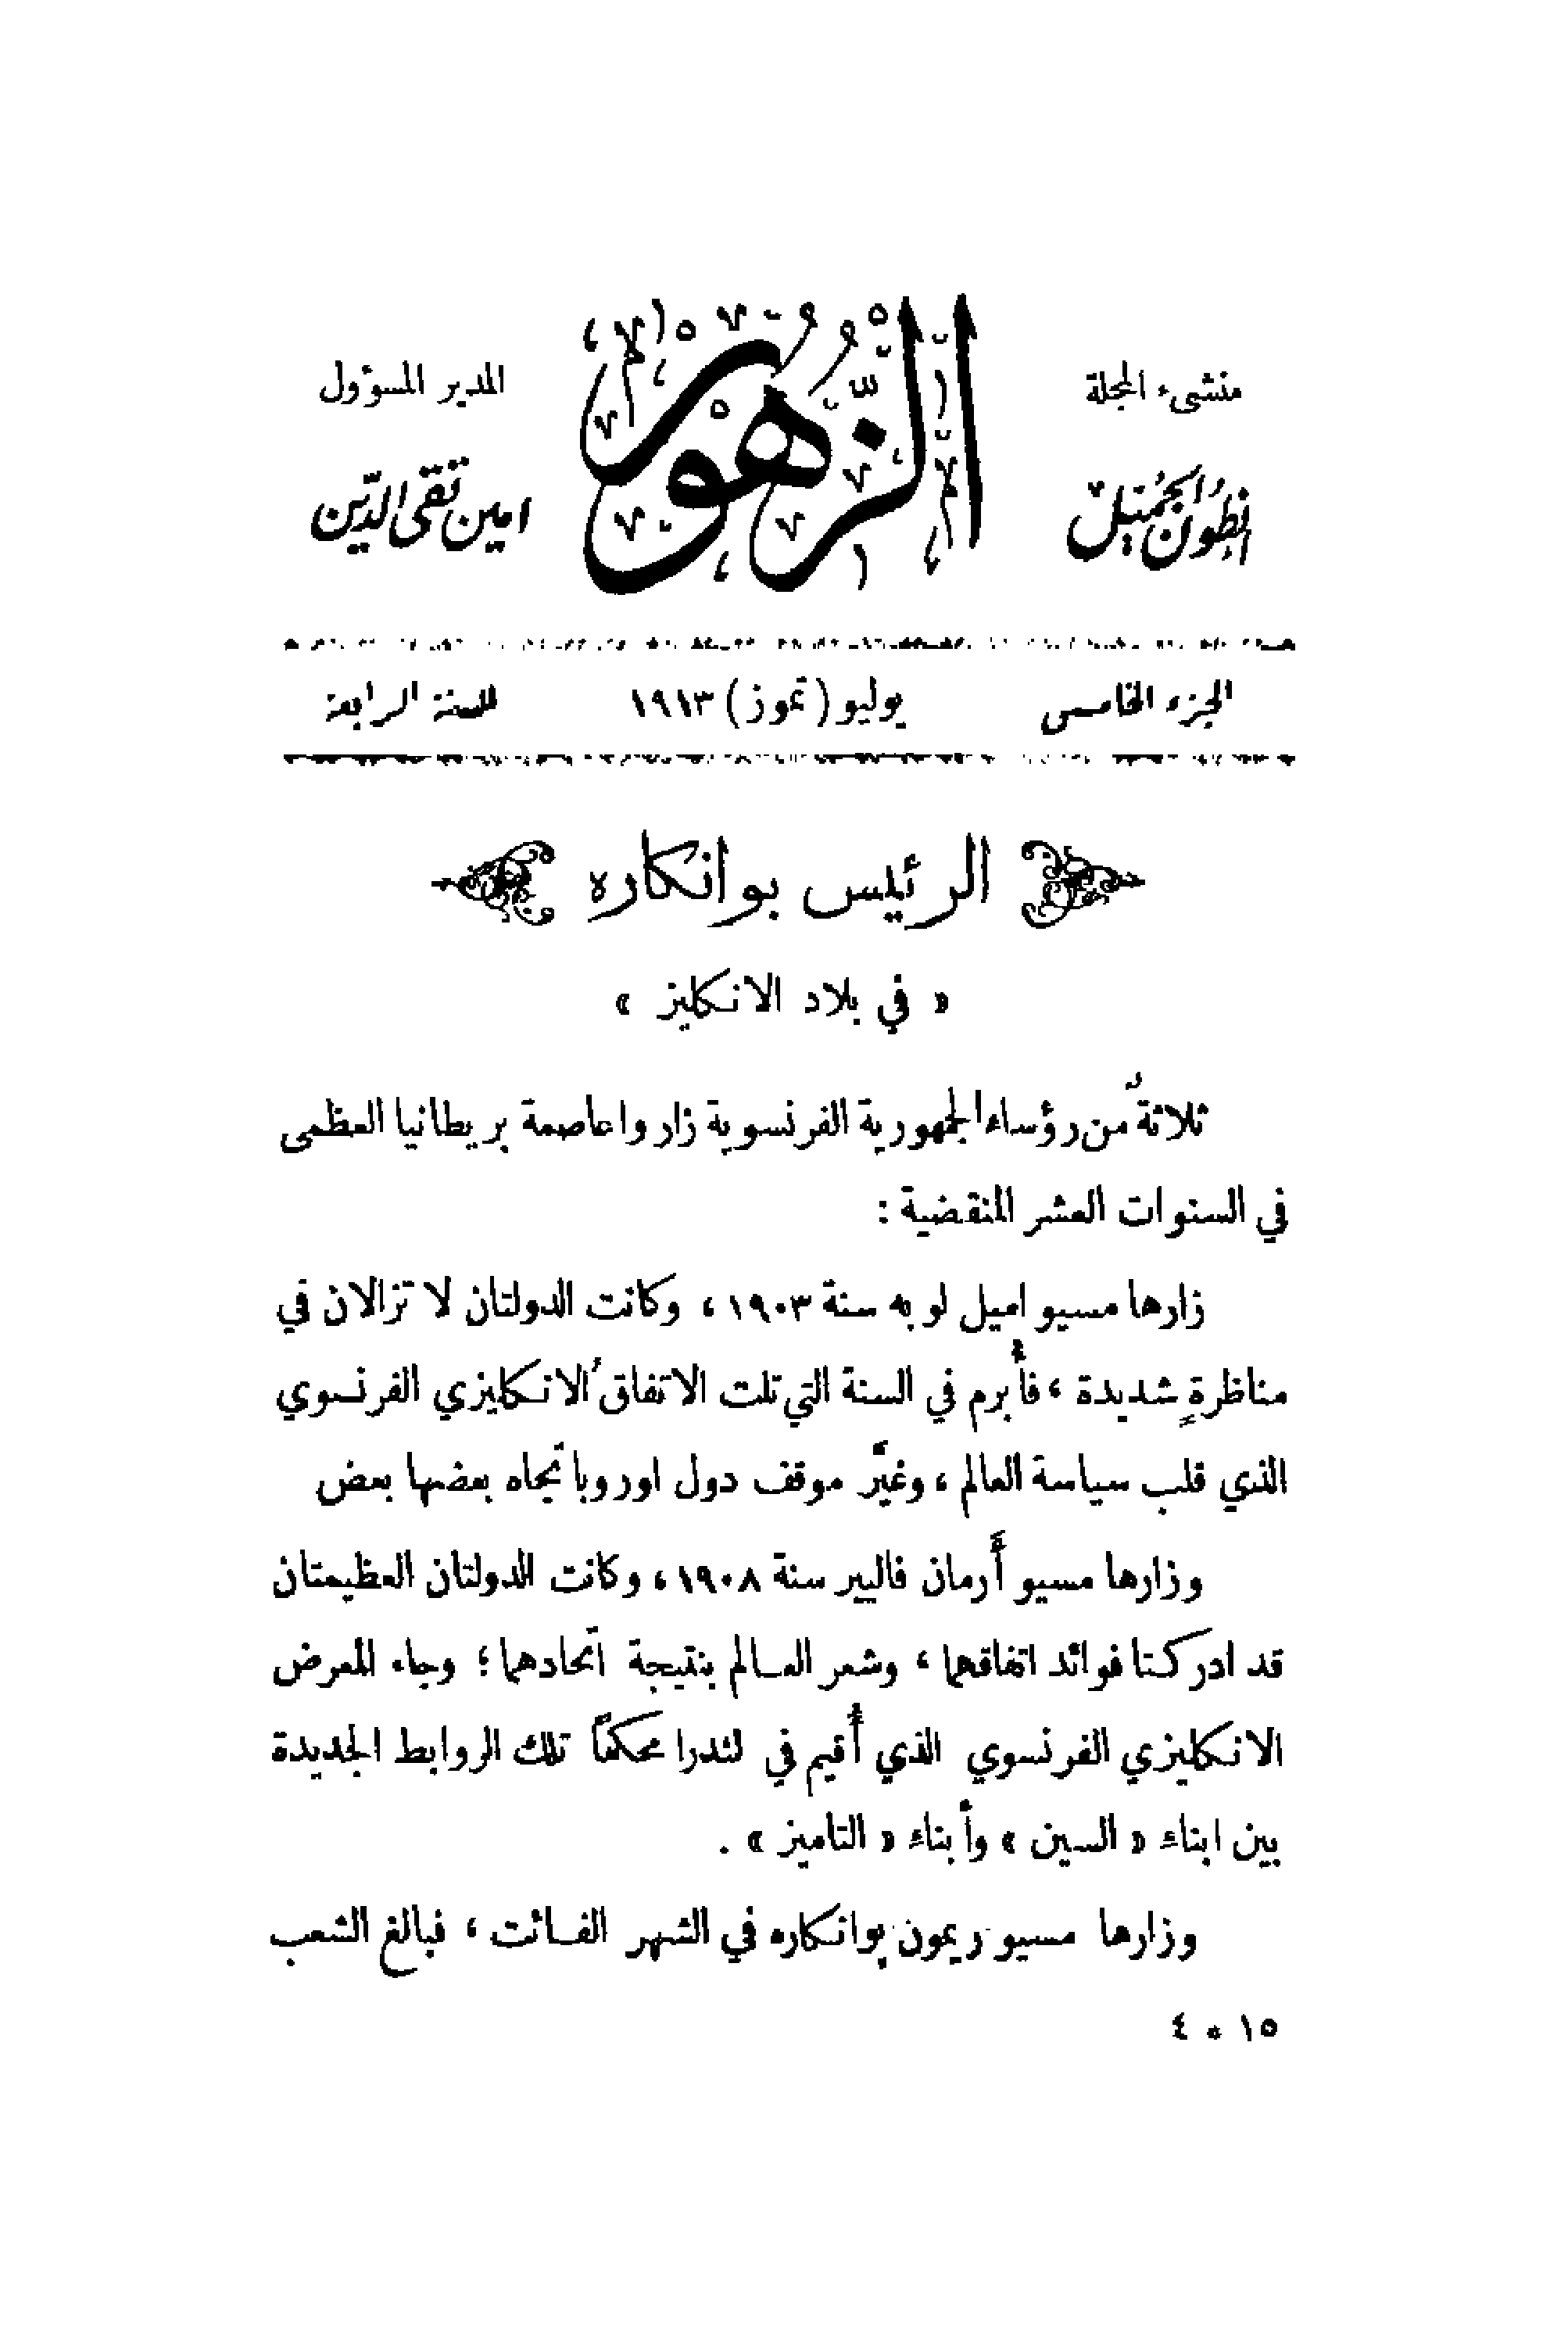 منشىء المجلة
انطون الجميّل
الزُّهُور
المدير المسوؤول
امين تقي الدّين
الجزء الخامس يوليو (تموز) ١٩١٣ للسنة الرابعة
الرئيس بوانكاره
« في بلاد الانكليز »
ثلاثةٌ من رؤساء الجمهورية الفرنسوية زاروا عاصمة بريطانيا العظمى
في السنوات العشر المنقضية :
زارها مسيو اميل لوبه سنة ١٩٠٣ ، وكانت الدولتان لا تزالان في
مناظرةٍ شديدة ، فأُبرم في السنة التي تلت الاتفاقُ الانكليزي الفرنسوي
الذي قلب سياسة العالم ، وغيَّر موقف دول اوروبا تجاه بعضها بعض
وزارها مسيو أَرمان فاليير سنة ١٩٠٨ ، وكانت الدولتان العظيمتان
قد ادركتا فوائد اتفاقهما ، وشعر العالم بنتيجة اتّحادهما ؛ وجاء المعرض
الانكليزي الفرنسوي الذي أُقيم في لندرا محكماً تلك الروابط الجديدة
بين ابناءِ « السين » وأبناءِ « التاميز » .
وزارها مسيو ريمون بوانكاره في الشهر الفائت ، فبالغ الشعب
١٥ * ٤